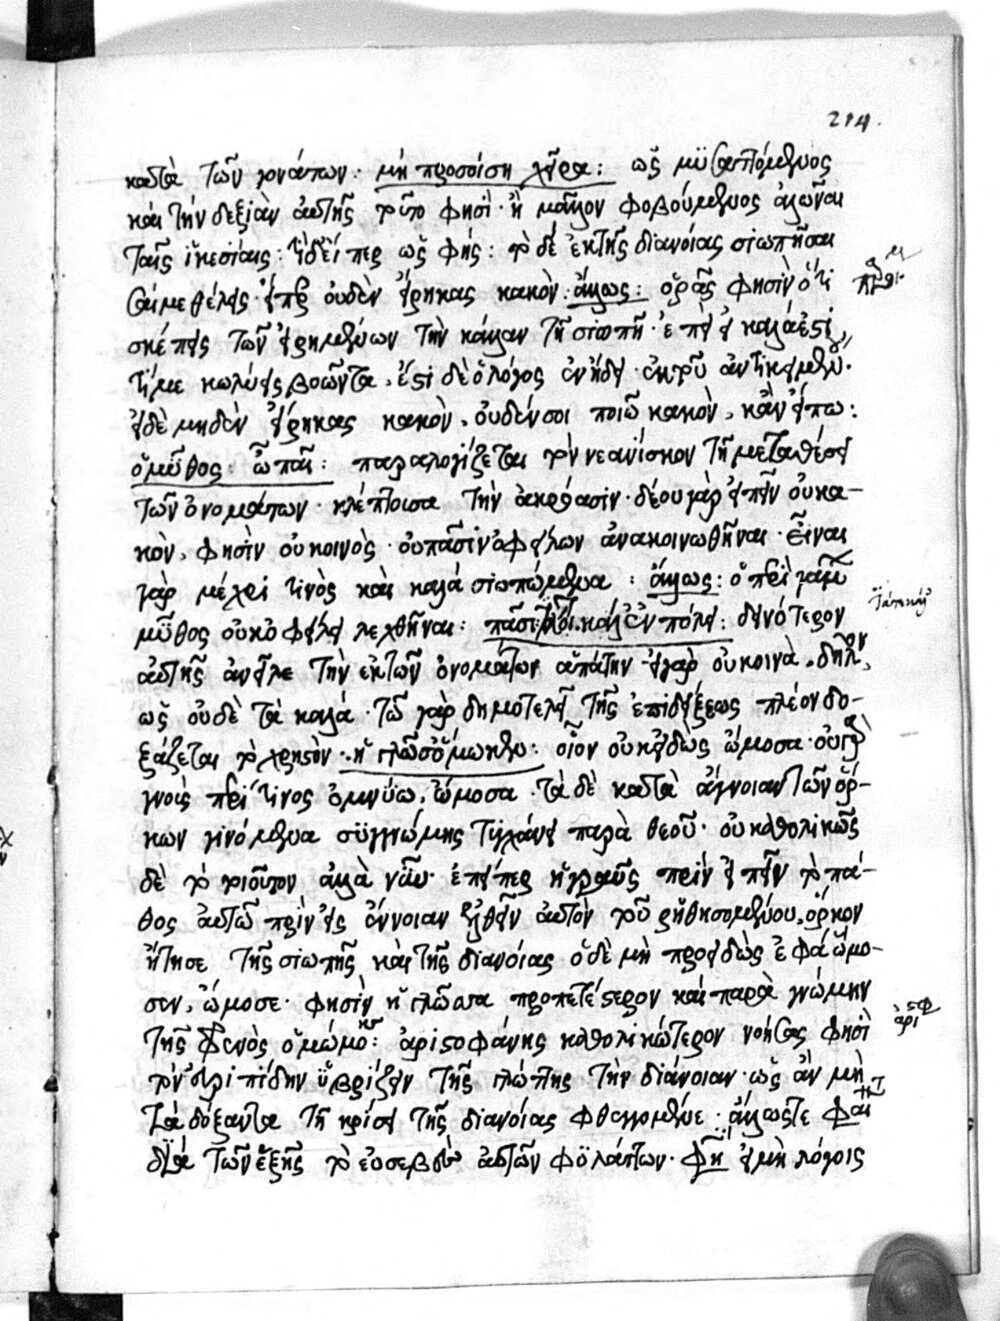 214.
κατὰ τῶν γονάτων· μὴ προσοίσῃ χεῖρα: ὡς μϋσαττόμενος
καὶ τὴν δεξιὰν αὐτῆς τοῦτο φησὶ· ἢ μᾶλλον φοβούμενος ἁλῶναι
ταῖς ἱκεσίαις: τὶ δ' εἴπερ ὡς φῇς: τὸ δὲ ἐκ τῆς διανοίας σιωπῆσαι
με θέλεις εἴπερ οὐδὲν εἴρηκας κακὸν: ἄλλως: ὁρᾶς φησὶν ὅτι
σκέπεις τῶν εἰρημένων τὴν κάλαν τῇ σιωπῇ· ἐπεὶ εἰ καλά ἐστι,
τί με κωλύεις βοῶντα, ἔστι δὲ ὁ λόγος ἐν ἤθει· ἐκ τοῦ ἀντικειμένου·
εἰ δὲ μηδὲν εἴρηκας κακὸν, οὐδέν σοι ποιῶ κακὸν, κἂν εἴπω:
ὁ μῦθος· ὦ παῖ: παραλογίζεται τὸν νεανίσκον τῇ μεταθέσει
τῶν ὀνομάτων· κλέπτουσα τὴν ἀκρόασιν· δέον γὰρ εἰπεῖν οὐ κα-
κὸν, φησὶν οὐ κοινὸς· οὐ πᾶσιν ὀφείλων ἀνακοινωθῆναι· εἶναι
γὰρ μέχρι τινὸς καὶ καλά σιωπώμενα: ἄλλως: ὁ περὶ γάμου
μῦθος οὐκ ὀφείλει λεχθῆναι: πᾶσι κάλλιον ἐν πολλοῖς: δεινότερον
αὐτῆς ἀνεῖλε τὴν ἐκ τῶν ὀνομάτων ἀπάτην· εἰ γὰρ οὐ κοινὰ, δῆλον,
ὡς οὐδὲ τὰ καλά· τῷ γὰρ δημοτελεῖ τῆς ἐπιδείξεως πλέον δο-
ξάζεται τὸ χρηστὸν· ἡ γλῶσσ' ὀμώμοκεν: οἷον οὐκ εἰδὼς ὤμοσα· οὐ γὰρ
γνοὺς περὶ τίνος ὀμνύω, ὤμοσα· τὰ δὲ κατὰ ἄγνοιαν τῶν ὅρ-
κων γινόμενα σϋγγνώμης τυγχάνει παρὰ θεοῦ· οὐ καθολικῶς
δὲ τὸ τοιοῦτον ἀλλὰ νῦν· ἐπείπερ ἡ γραῦς πρὶν εἰπεῖν τὸ πά-
θος αὐτῷ πρὶν εἰς ἔννοιαν ἐλθεῖν αὐτὸν τοῦ ῥηθησομένου, ὅρκον
ᾔτησε τῆς σιωπῆς καὶ τῆς διανοίας ὁ δὲ μὴ προειδὼς ἐφ' ᾧ ὤμο-
σεν, ὤμοσε· φησὶν ἡ γλῶσσα προπετέστερον καὶ παρὰ γνώμην
τῆς φρενὸς ὀμώμοκε: ἀριστοφάνης καθολικώτερον νοήσας φησὶ
τὸν εὐριπίδην ὑβρίζειν τῆς γλώττης τὴν διάνοιαν· ὡς ἂν μὴ
τὰ δόξαντα τῇ κρίσει τῆς διανοίας φθεγγομένης: ἄλλως τε
διὰ τῶν ἑξῆς τὸ εὐσεβὲς αὐτῶν φϋλάττων· φησὶ εἰ μὴ λόγοις